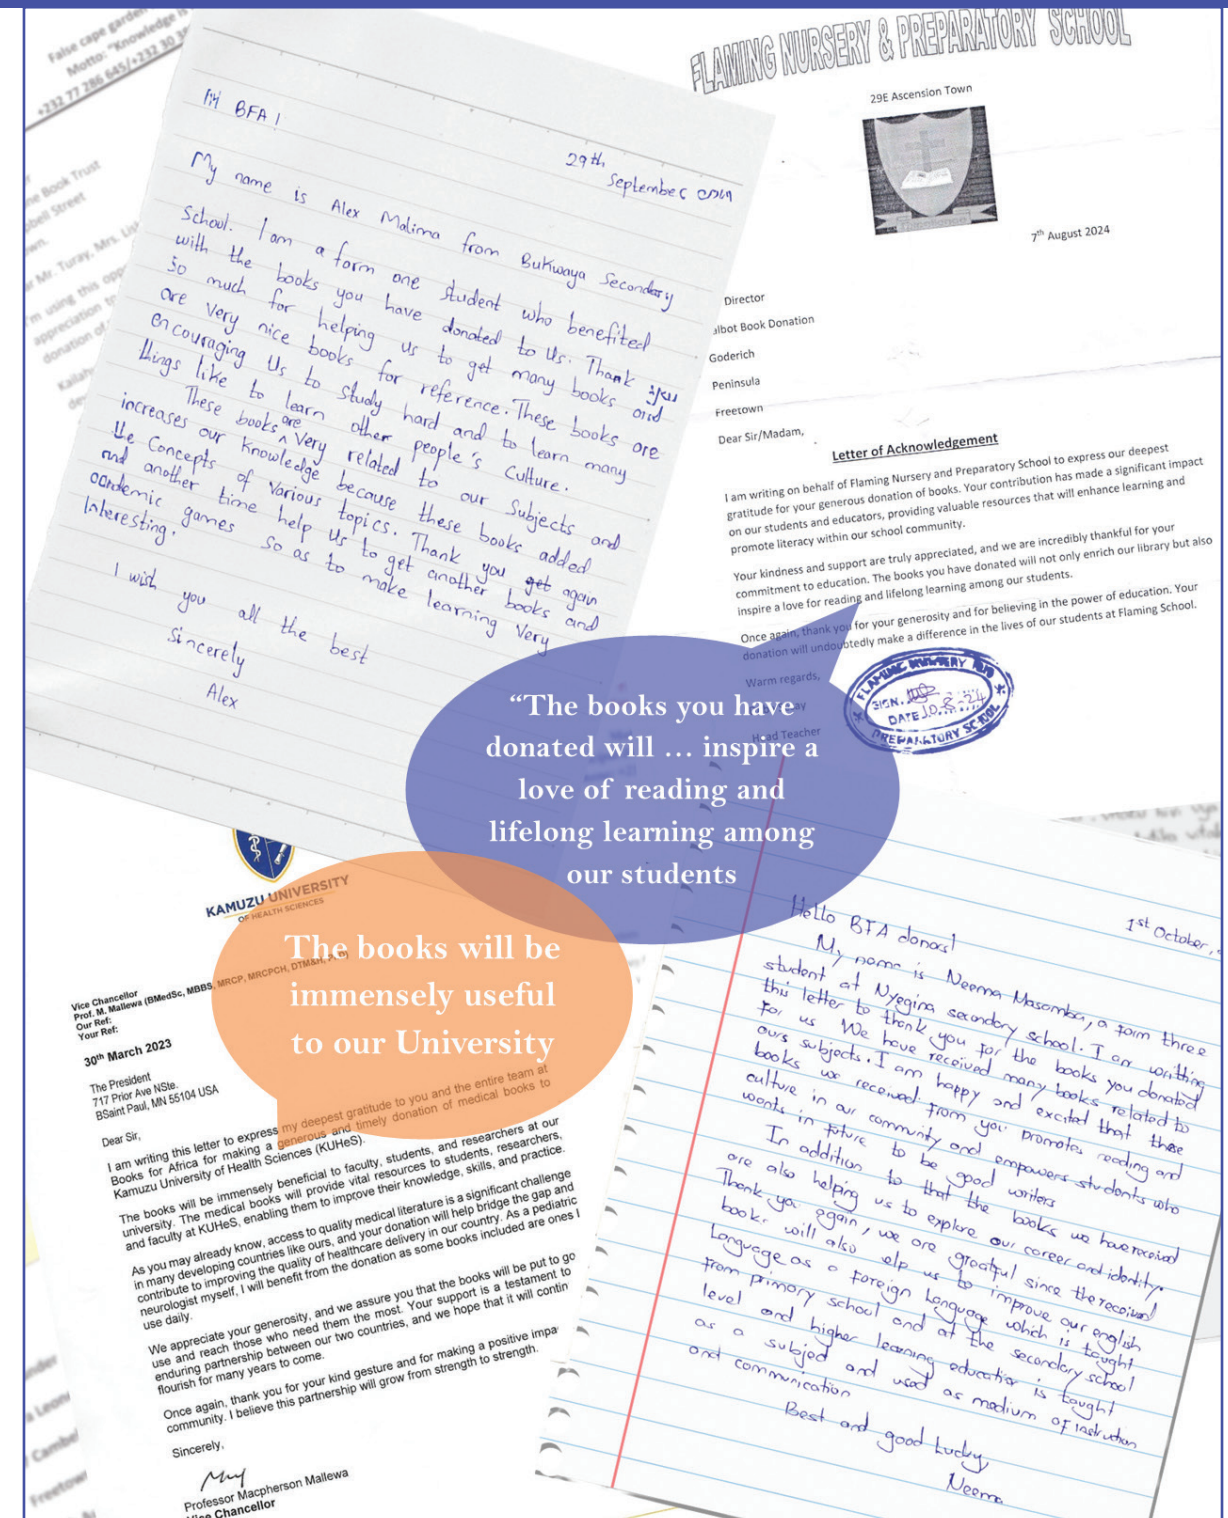 False cape garden
Motto: "Knowledge is
+232 77 286 645/+232 30
ne Book Trust
bell Street
wn.
r Mr. Turay, Mrs.
I'm using this opp
appreciation to
donation of
Kailah
Hi BFA!
29th
September
My name is Alex Malima from Bukwaya Secondary
School. I am a form one student who benefited
with the books you have donated to us. Thank you
so much for helping us to get many books and
are very nice books for reference. These books are
encouraging us to study hard and to learn many
things like to learn other people's culture.
These books are very related to our subjects and
increases our knowledge because these books added
the concepts of various topics. Thank you get again
and another time help us to get another books and
academic games so as to make learning very
interesting.
I wish you all the best
Sincerely
Alex
FLAMING NURSERY & PREPARATORY SCHOOL
29E Ascension Town
7th August 2024
Director
albot Book Donation
Goderich
Peninsula
Freetown
Dear Sir/Madam,
Letter of Acknowledgement
I am writing on behalf of Flaming Nursery and Preparatory School to express our deepest
gratitude for your generous donation of books. Your contribution has made a significant impact
on our students and educators, providing valuable resources that will enhance learning and
promote literacy within our school community.
Your kindness and support are truly appreciated, and we are incredibly thankful for your
commitment to education. The books you have donated will not only enrich our library but also
inspire a love for reading and lifelong learning among our students.
Once again, thank you for your generosity and for believing in the power of education. Your
donation will undoubtedly make a difference in the lives of our students at Flaming School.
Warm regards,
ay
Head Teacher
FLAMING NURSERY AND
SIGN.
DATE 10-8-24
PREPARATORY SCHOOL
“The books you have
donated will … inspire a
love of reading and
lifelong learning among
our students
KAMUZU UNIVERSITY
OF HEALTH SCIENCES
The books will be
immensely useful
to our University
Vice Chancellor
Prof. M. Mallewa (BMedSc, MBBS, MRCP, MRCPCH, DTM&H,
Our Ref:
Your Ref:
30th March 2023
The President
717 Prior Ave NSte.
BSaint Paul, MN 55104 USA
Dear Sir,
I am writing this letter to express my deepest gratitude to you and the entire team at
Books for Africa for making a generous and timely donation of medical books to
Kamuzu University of Health Sciences (KUHeS).
The books will be immensely beneficial to faculty, students, and researchers at our
university. The medical books will provide vital resources to students, researchers,
and faculty at KUHeS, enabling them to improve their knowledge, skills, and practice.
As you may already know, access to quality medical literature is a significant challenge
in many developing countries like ours, and your donation will help bridge the gap and
contribute to improving the quality of healthcare delivery in our country. As a pediatric
neurologist myself, I will benefit from the donation as some books included are ones I
use daily.
We appreciate your generosity, and we assure you that the books will be put to go
use and reach those who need them the most. Your support is a testament to
enduring partnership between our two countries, and we hope that it will contin
flourish for many years to come.
Once again, thank you for your kind gesture and for making a positive impa
community. I believe this partnership will grow from strength to strength.
Sincerely,
Professor Macpherson Mallewa
Vice Chancellor
1st October,
Hello BFA donors!
My name is Neema Masamba, a form three
student at Nyegina secondary school. I am writting
this letter to thank you for the books you donated
for us We have received many books related to
ours subjects. I am happy and excited that these
books we received from you promotes reading and
culture in our community and empowers students who
wants in future to be good writers
In addition to that the books we have received
are also helping us to explore our career and identity.
Thank you again, we are greatful since the received
books will also elp us to improve our english
Language as a foreign Language which is taught
from primary school and at the secondary school
level and higher learning education is taught
as a subject and used as medium of instruction
and communication
Best and good Lucky,
Neema
a Leone
Cambe
Freetow